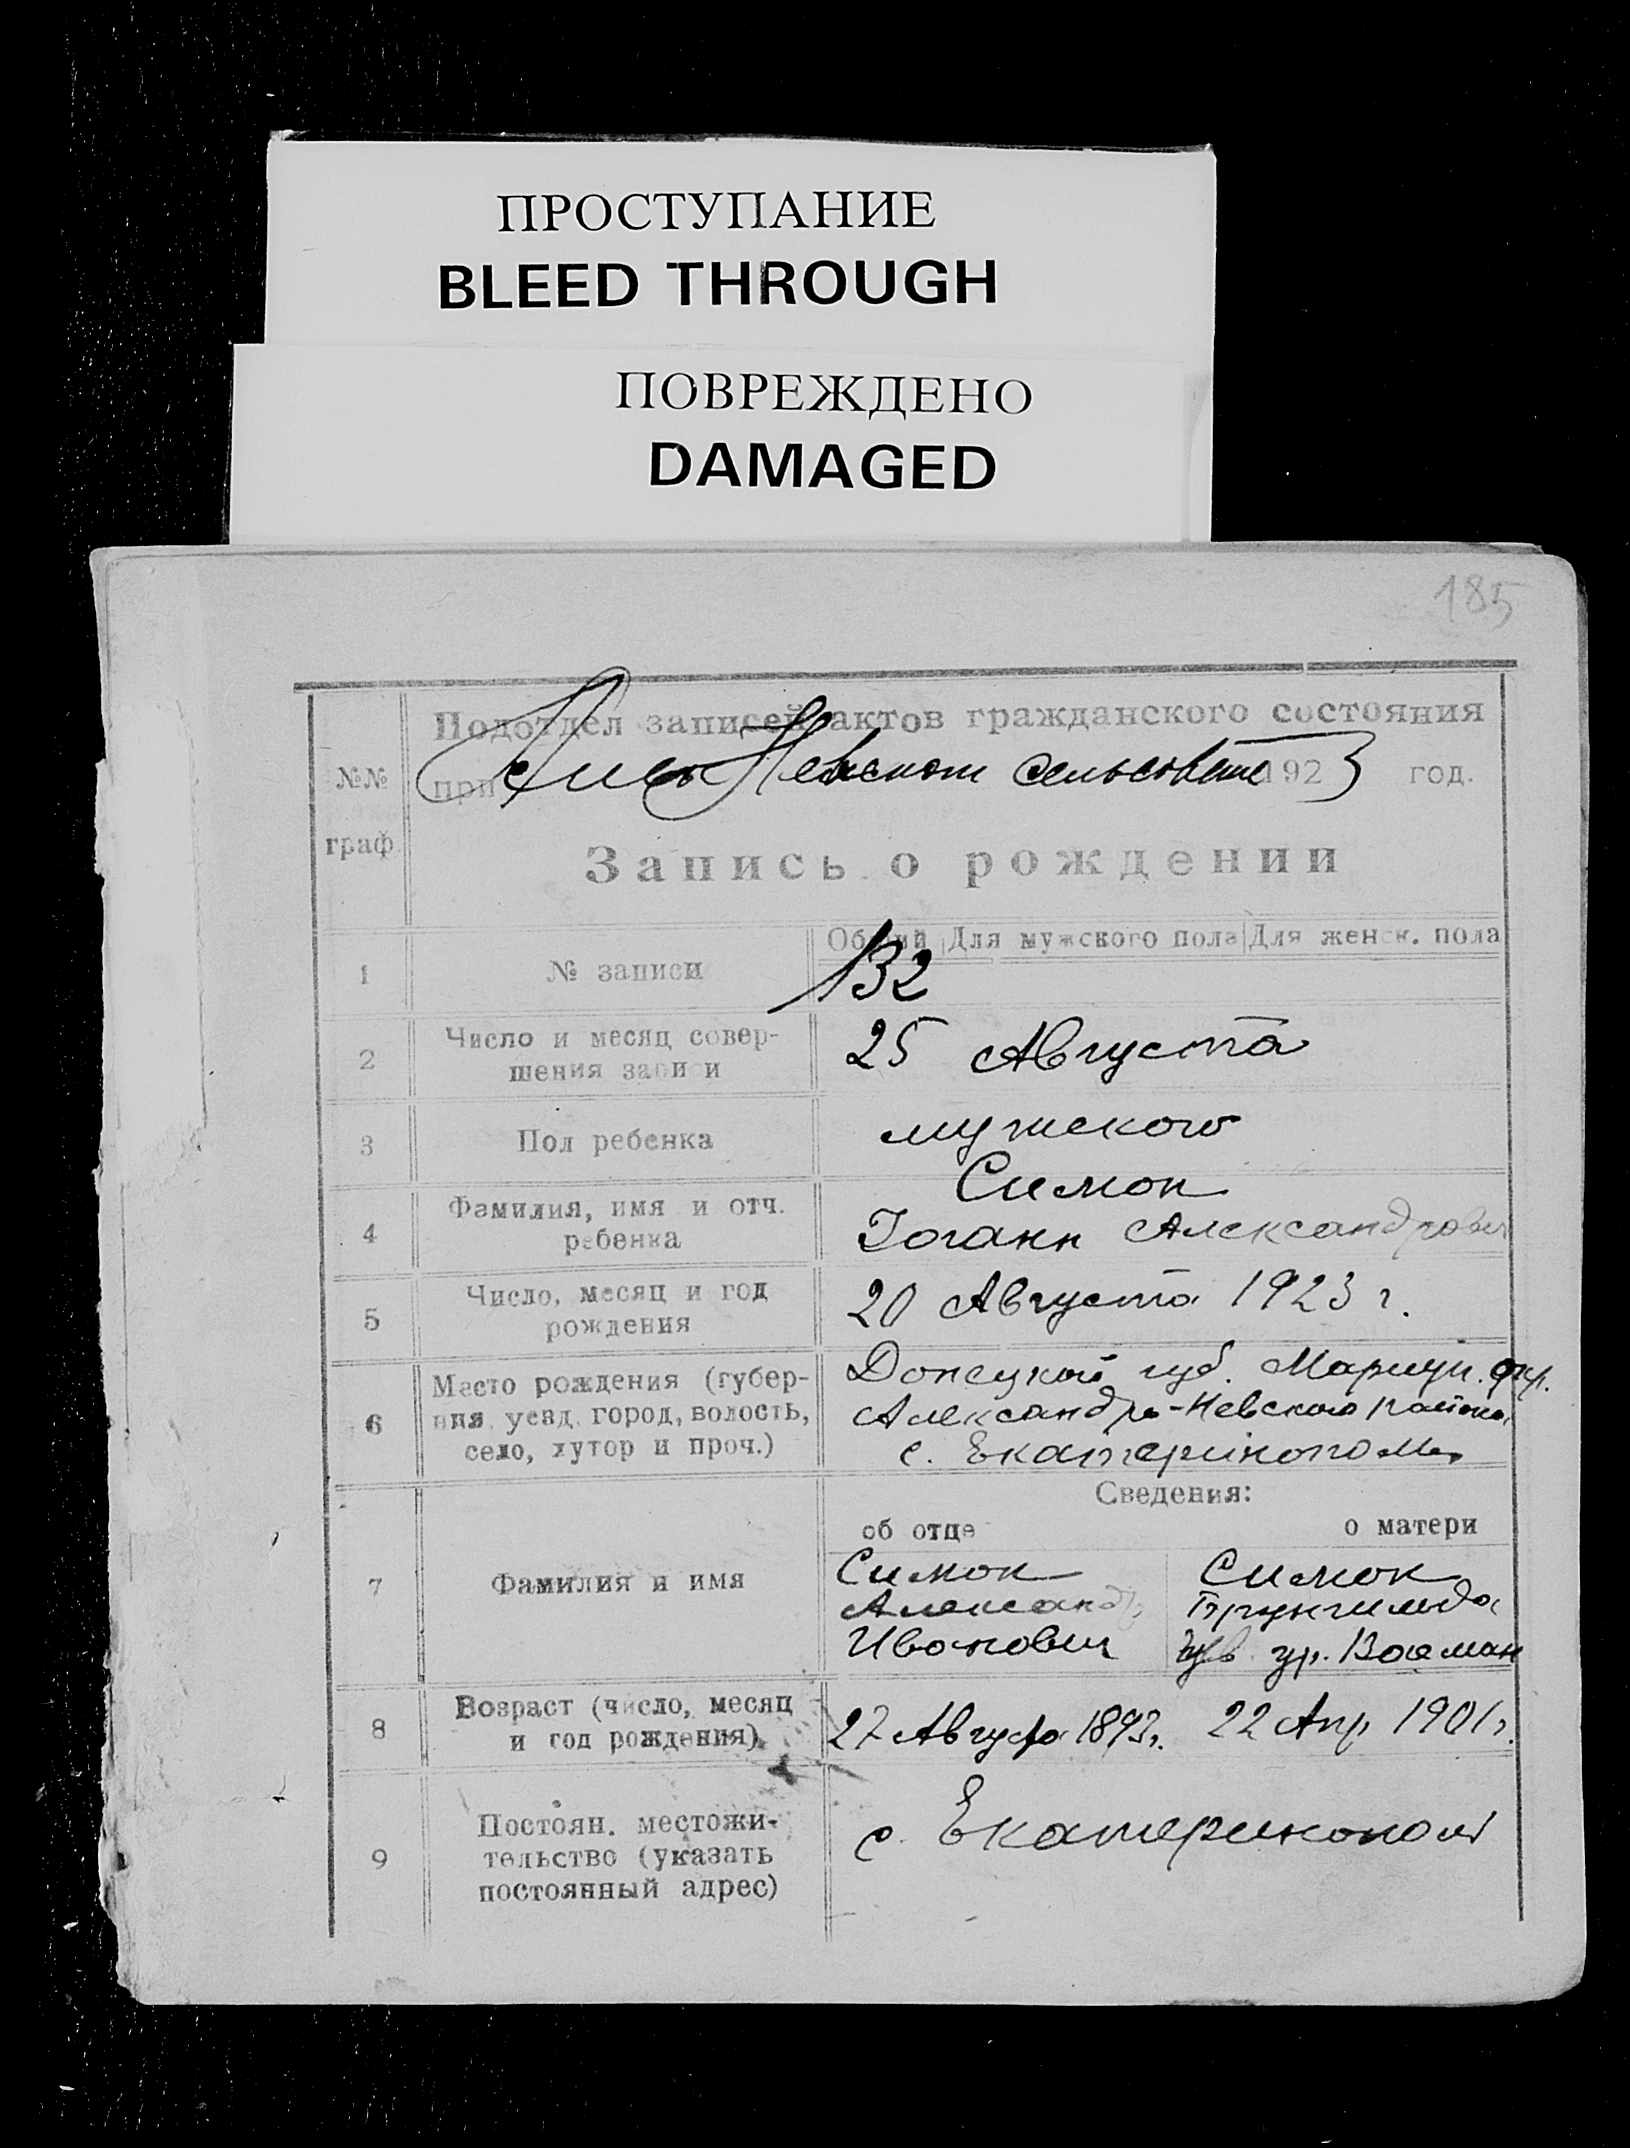 ПРОСТУПАНИЕ
BLEED THROUGH
ПОВРЕЖДЕНО
DAMAGED
185
Подотдел записей актов гражданского состояния
при Невском сельсовете 1923 год.
№№
граф
Запись о рождении
Общий Для мужского пола Для женск. пола
1 № записи 132
2 Число и месяц совер-
шения записи
25 Августа
3 Пол ребенка мужского
4 Фамилия, имя и отч.
ребенка
Симон
Иоганн Александрович
5 Число, месяц и год
рождения
20 Августа 1923 г.
6 Место рождения (губер-
ния уезд, город, волость,
село, хутор и проч.)
Донецкой губ. Мариуп. окр.
Александро-Невского района,
с. Екатеринополь
Сведения:
об отце о матери
7 Фамилия и имя
Симон
Александр
Иванович
Симон
Брунгильда
ур. Восман
8 Возраст (число, месяц
и год рождения)
27 Августа 1893г. 22 Апр. 1901г.
9 Постоян. местожи-
тельство (указать
постоянный адрес)
с. Екатеринополь